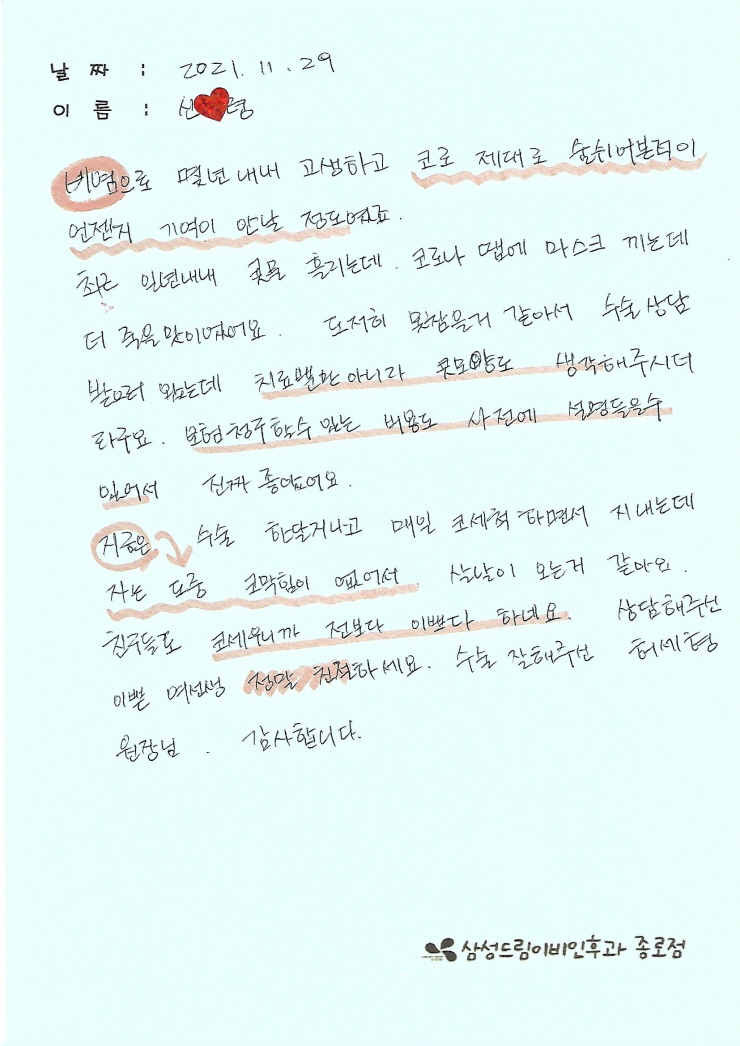 날 짜 : 2021. 11. 29
이 름 : 신 ♥ 령
비염으로 몇년 내내 고생하고 코로 제대로 숨쉬어본적이
언젠지 기억이 안날 정도였죠.
최근 일년내내 콧물 흘리는데. 코로나 땜에 마스크 끼는데
더 죽을맛이였어요. 도저히 못참을거 같아서 수술상담
받으러 왔는데 치료뿐만아니라 콧모양도 생각해주시더
라구요. 보험청구할수 있는 비용도 사전에 설명들을수
있어서 진짜 좋았어요.
지금은 수술 한달지나고 매일 코세척 하면서 지내는데
자는 도중 코막힘이 없어서 살날이 오는거 같아요.
친구들도 코세우니까 전보다 이쁘다 하네요. 상담해주신
이쁜 여선생 정말 친절하세요. 수술 잘해주신 허세형
원장님. 감사합니다.
삼성드림이비인후과 종로점